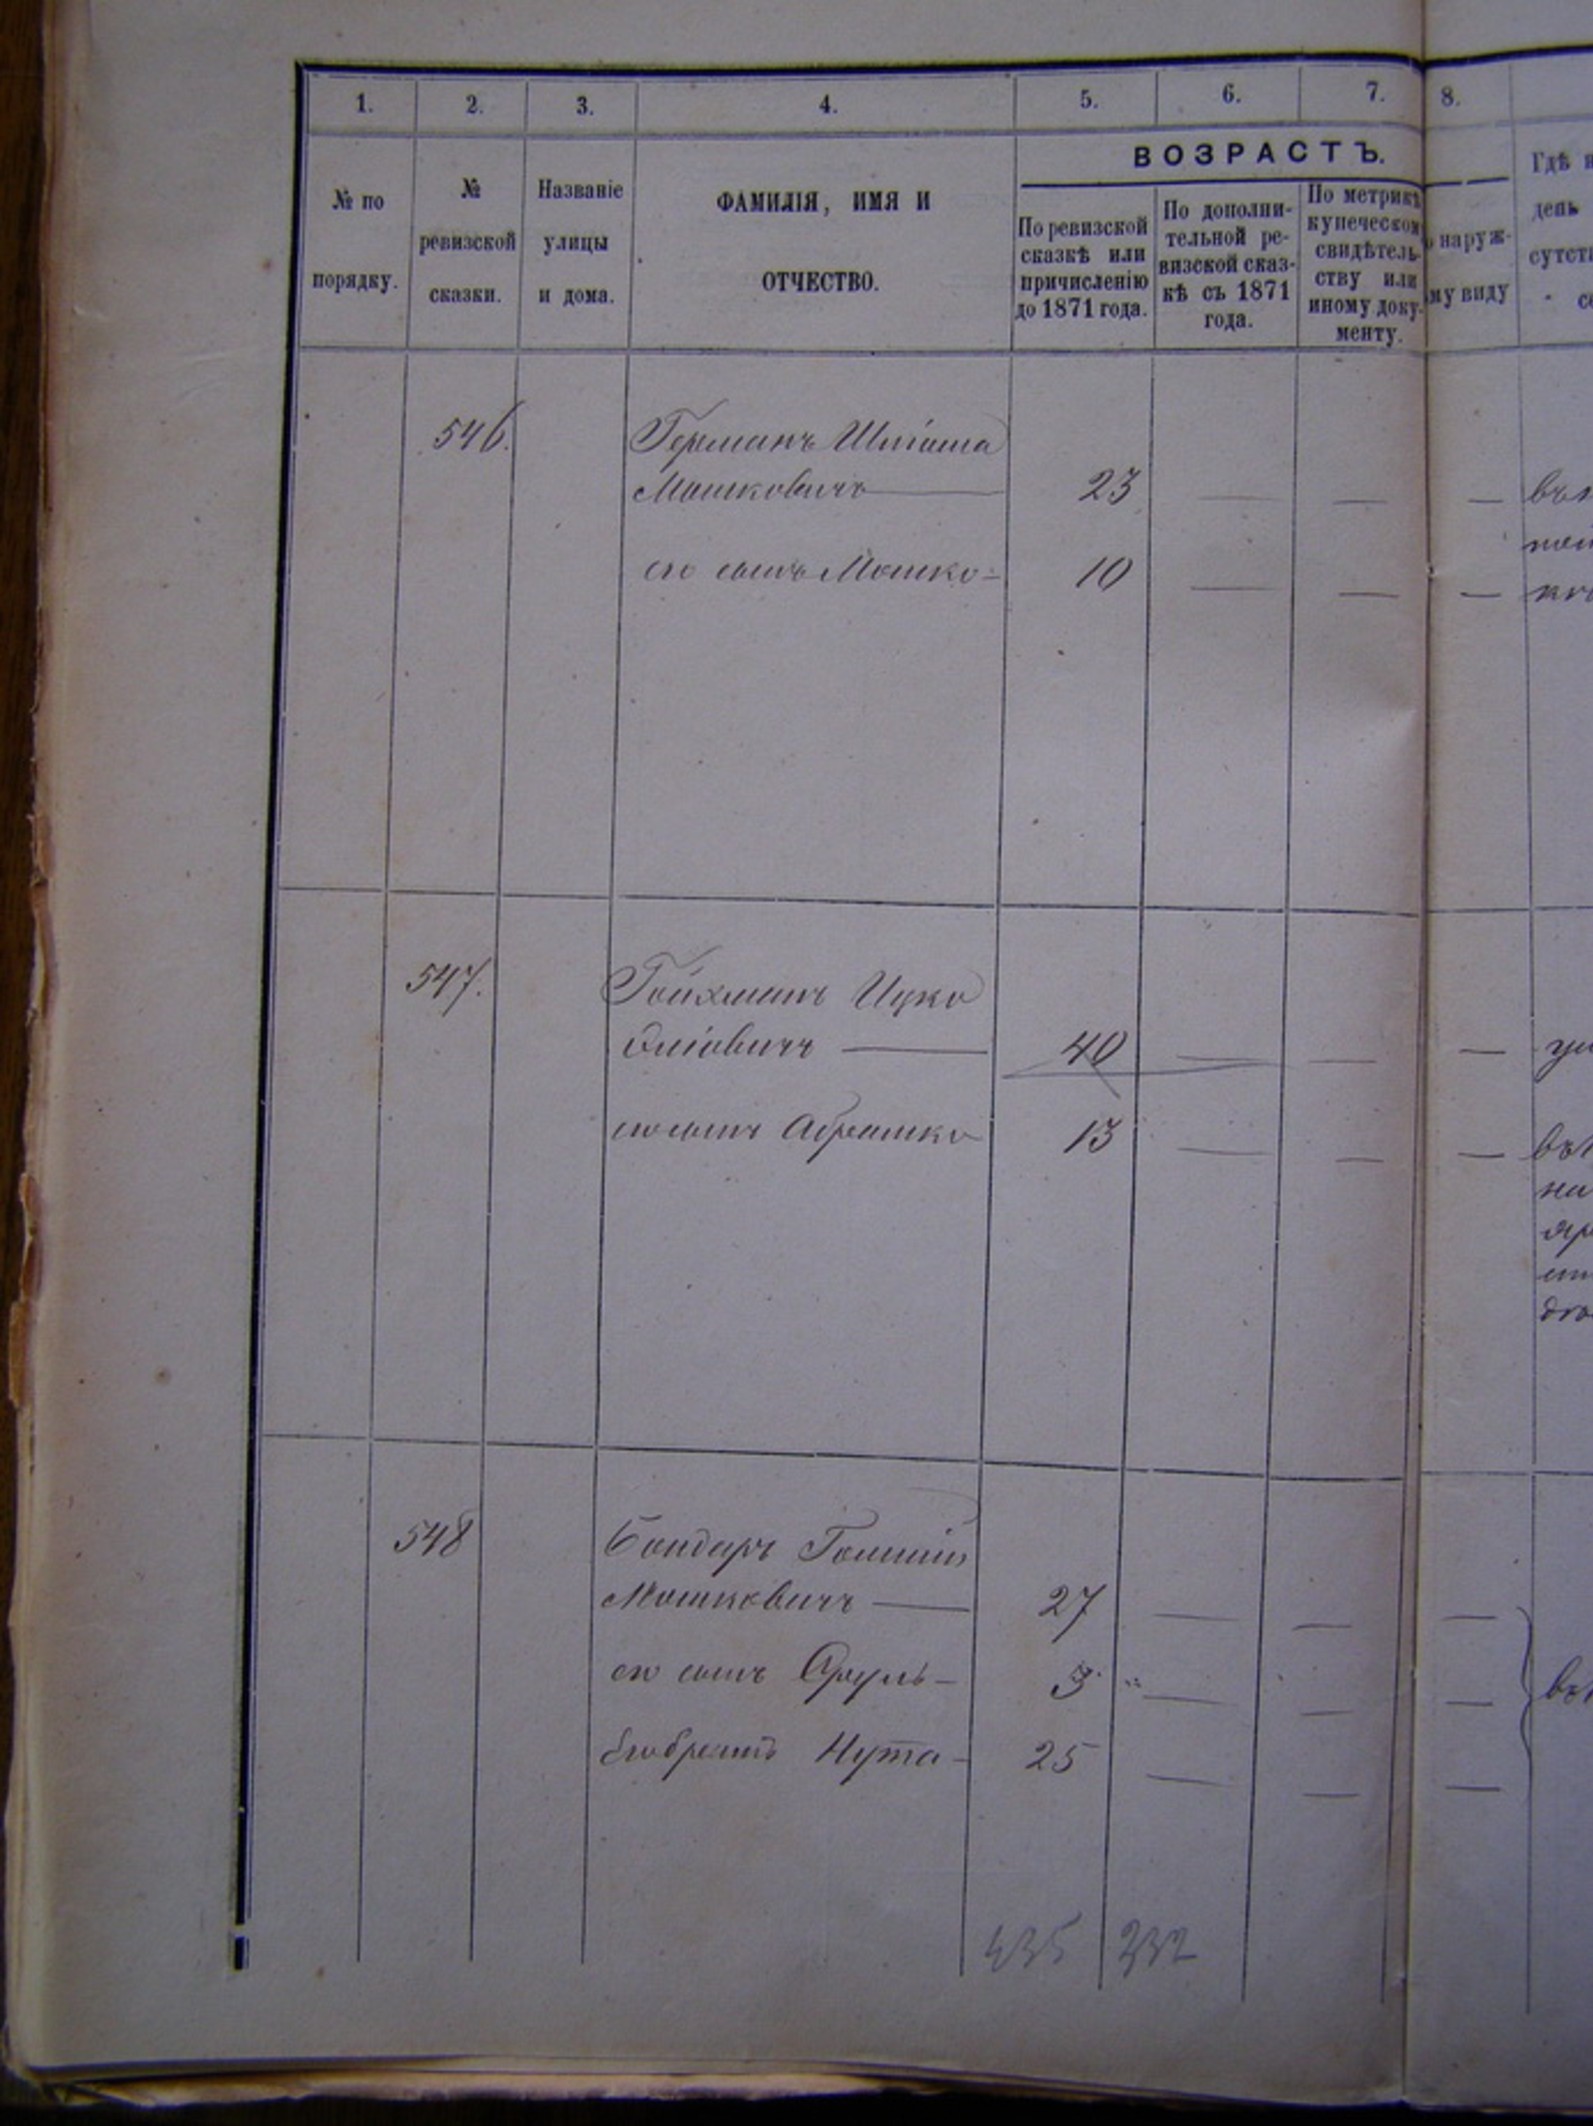 1. 2. 3. 4. 5. 6. 7. 8.
ВОЗРАСТЪ.
№ по
порядку.
№
ревизской
сказки.
Названіе
улицы
и дома.
ФАМИЛІЯ, ИМЯ И
ОТЧЕСТВО.
По ревизской
сказкѣ или
причисленію
до 1871 года.
По дополни-
тельной ре-
визской сказ-
кѣ съ 1871
года.
По метрикѣ
купеческом
свидѣтель-
ству или
иному доку-
менту.
наруж-
му виду
Гдѣ
день
сутст
546. Германъ
Мошковичъ — 23 — — —
его сынъ Мошко - 10 — — —
547. Гойхманъ Ицко
— 40 — — —
его сынъ Абрашко 13 — — —
548 Бондарь
Мошковичъ — 27 — — —
его сынъ Сруль - 3 — — —
Его братъ Нута - 25 — — —
435 332